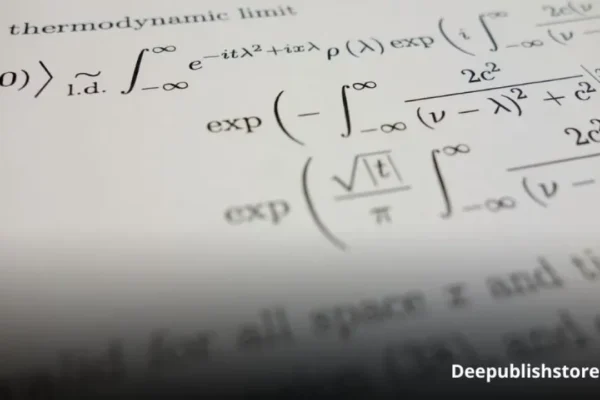 thermodynamic limit
0)⟩ ~ l.d. ∫_{-∞}^{∞} e^{-itλ²+ixλ} ρ(λ) exp ( i ∫_{-∞}^{∞} 2c(ν / (ν −
exp ( − ∫_{-∞}^{∞} 2c² / (ν − λ)² + c² |
exp ( √|t| / π ∫_{-∞}^{∞} 2c² / (ν −
for all space x and ti
and
Deepublishstore